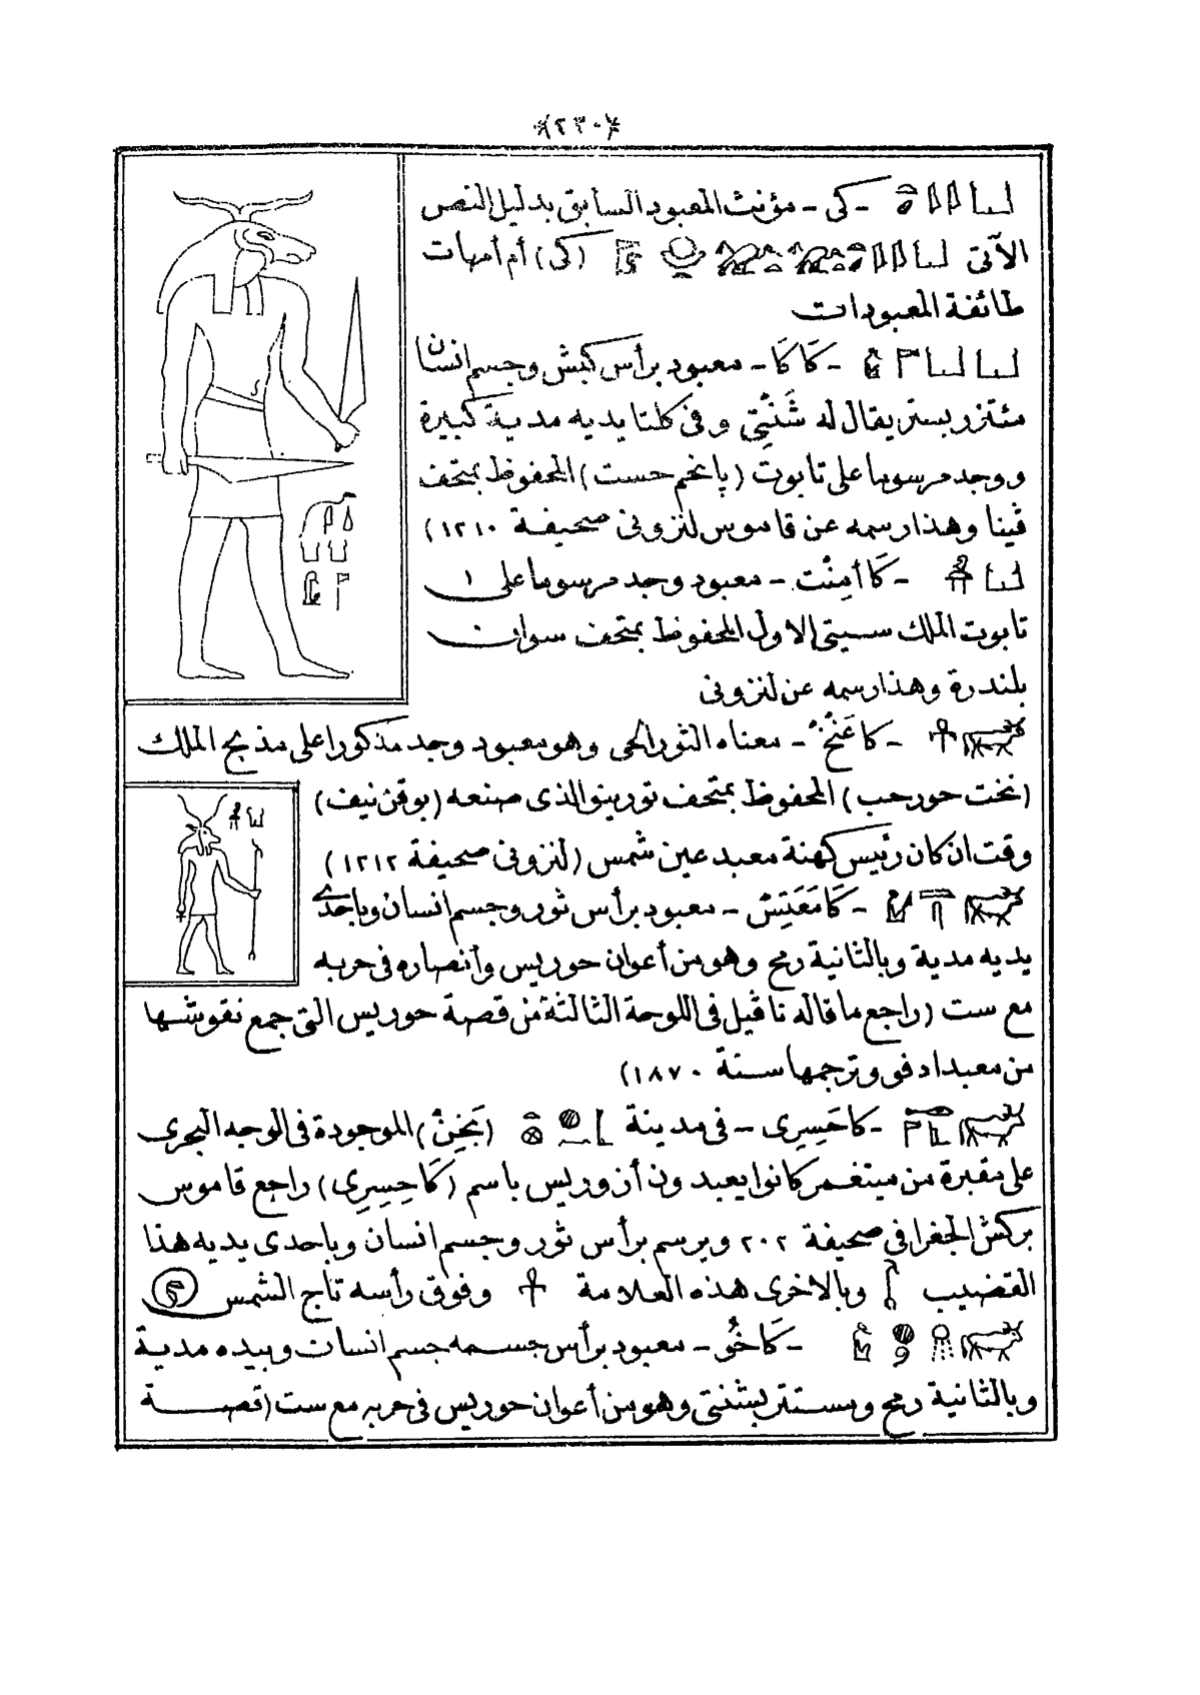 (٢٣٠)
- كى - مؤنث المعبود السابق بدليل النص
الآتى (كى) أم أمهات
طائفة المعبودات
- كَاكَا - معبود برأس كبش وجسم انسان
مئتزر بستر يقال له شَنْتِى وفى كلتا يديه مدية كبيرة
ووجد مرسوما على تابوت (پانحم حست) المحفوظ بمتحف
ڤينا وهذا رسمه عن قاموس لنزونى صحيفة ١٢١٠)
- كَا أمِنْت - معبود وجد مرسوما على ١
تابوت الملك سيتى الاول المحفوظ بمتحف سوان
بلندرة وهذا رسمه عن لنزونى
- كاعَنْخْ - معناه الثور الحى وهو معبود وجد مذكورا على مذبح الملك
(نخت حور حب) المحفوظ بمتحف تورينو الذى صنعه (بوقن نيف)
وقت ان كان رئيس كهنة معبد عين شمس (لنزونى صحيفة ١٢١٢)
- كَامَعَتِسْ - معبود برأس ثور وجسم انسان وباحدى
يديه مدية وبالثانية رمح وهو من أعوان حوريس وأنصاره فى حربه
مع ست (راجع ما قاله ناڤيل فى اللوحة الثالثة من قصة حوريس التى جمع نقوشها
من معبد ادفو وترجمها سنة ١٨٧٠)
- كاحَسِرِى - فى مدينة (بَخِنْ) الموجودة فى الوجه البحرى
على مقبرة من ميتغمر كانوا يعبدون أزوريس باسم (كَاحِسِرِى) راجع قاموس
بركش الجغرافى صحيفة ٢٠٢ ويرسم برأس ثور وجسم انسان وباحدى يديه هذا
القضيب وبالاخرى هذه العلامة وفوق رأسه تاج الشمس
- كَاخُو - معبود برأس جسمه جسم انسان وبيده مدية
وبالثانية رمح ومستتر بشنتى وهو من أعوان حوريس فى حربه مع ست (قصة